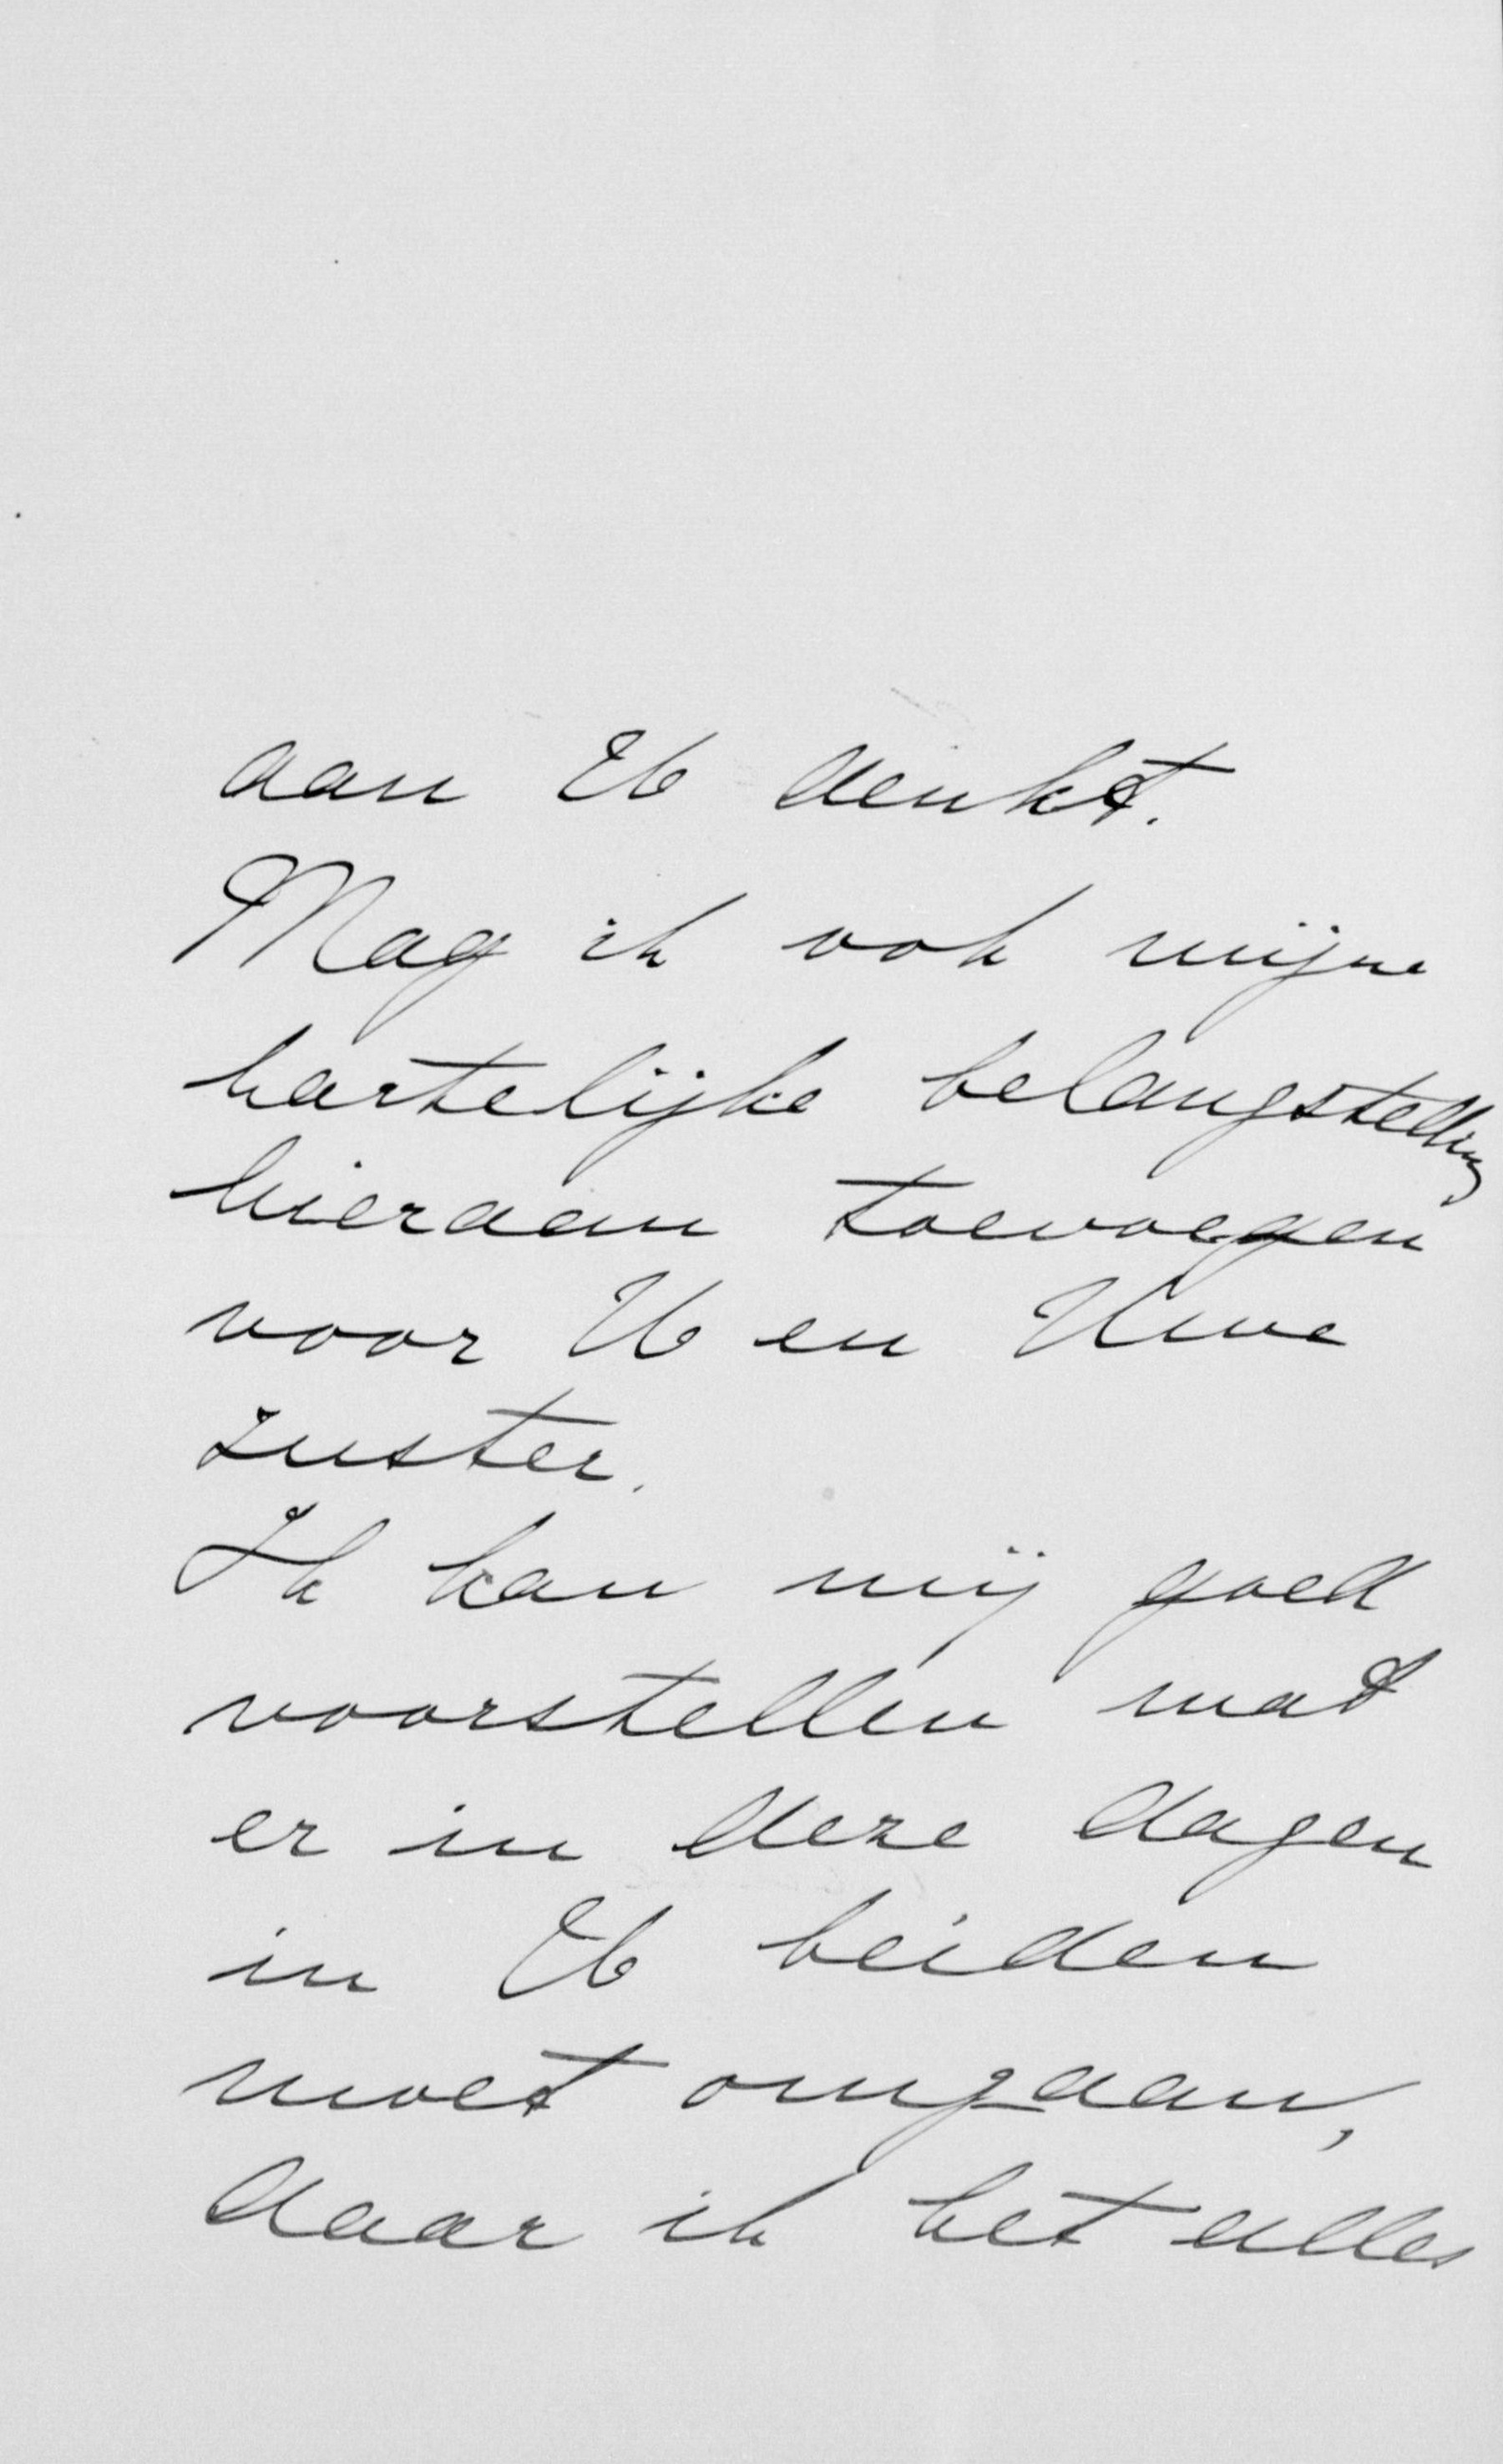 aan U denkt.
Mag ik ook mijne
hartelijke belangstelling
hieraan toevoegen
voor U en Uwe
zuster.
Ik kan mij goed
voorstellen wat
er in deze dagen
in U beiden
moet omgaan,
daar ik het alles